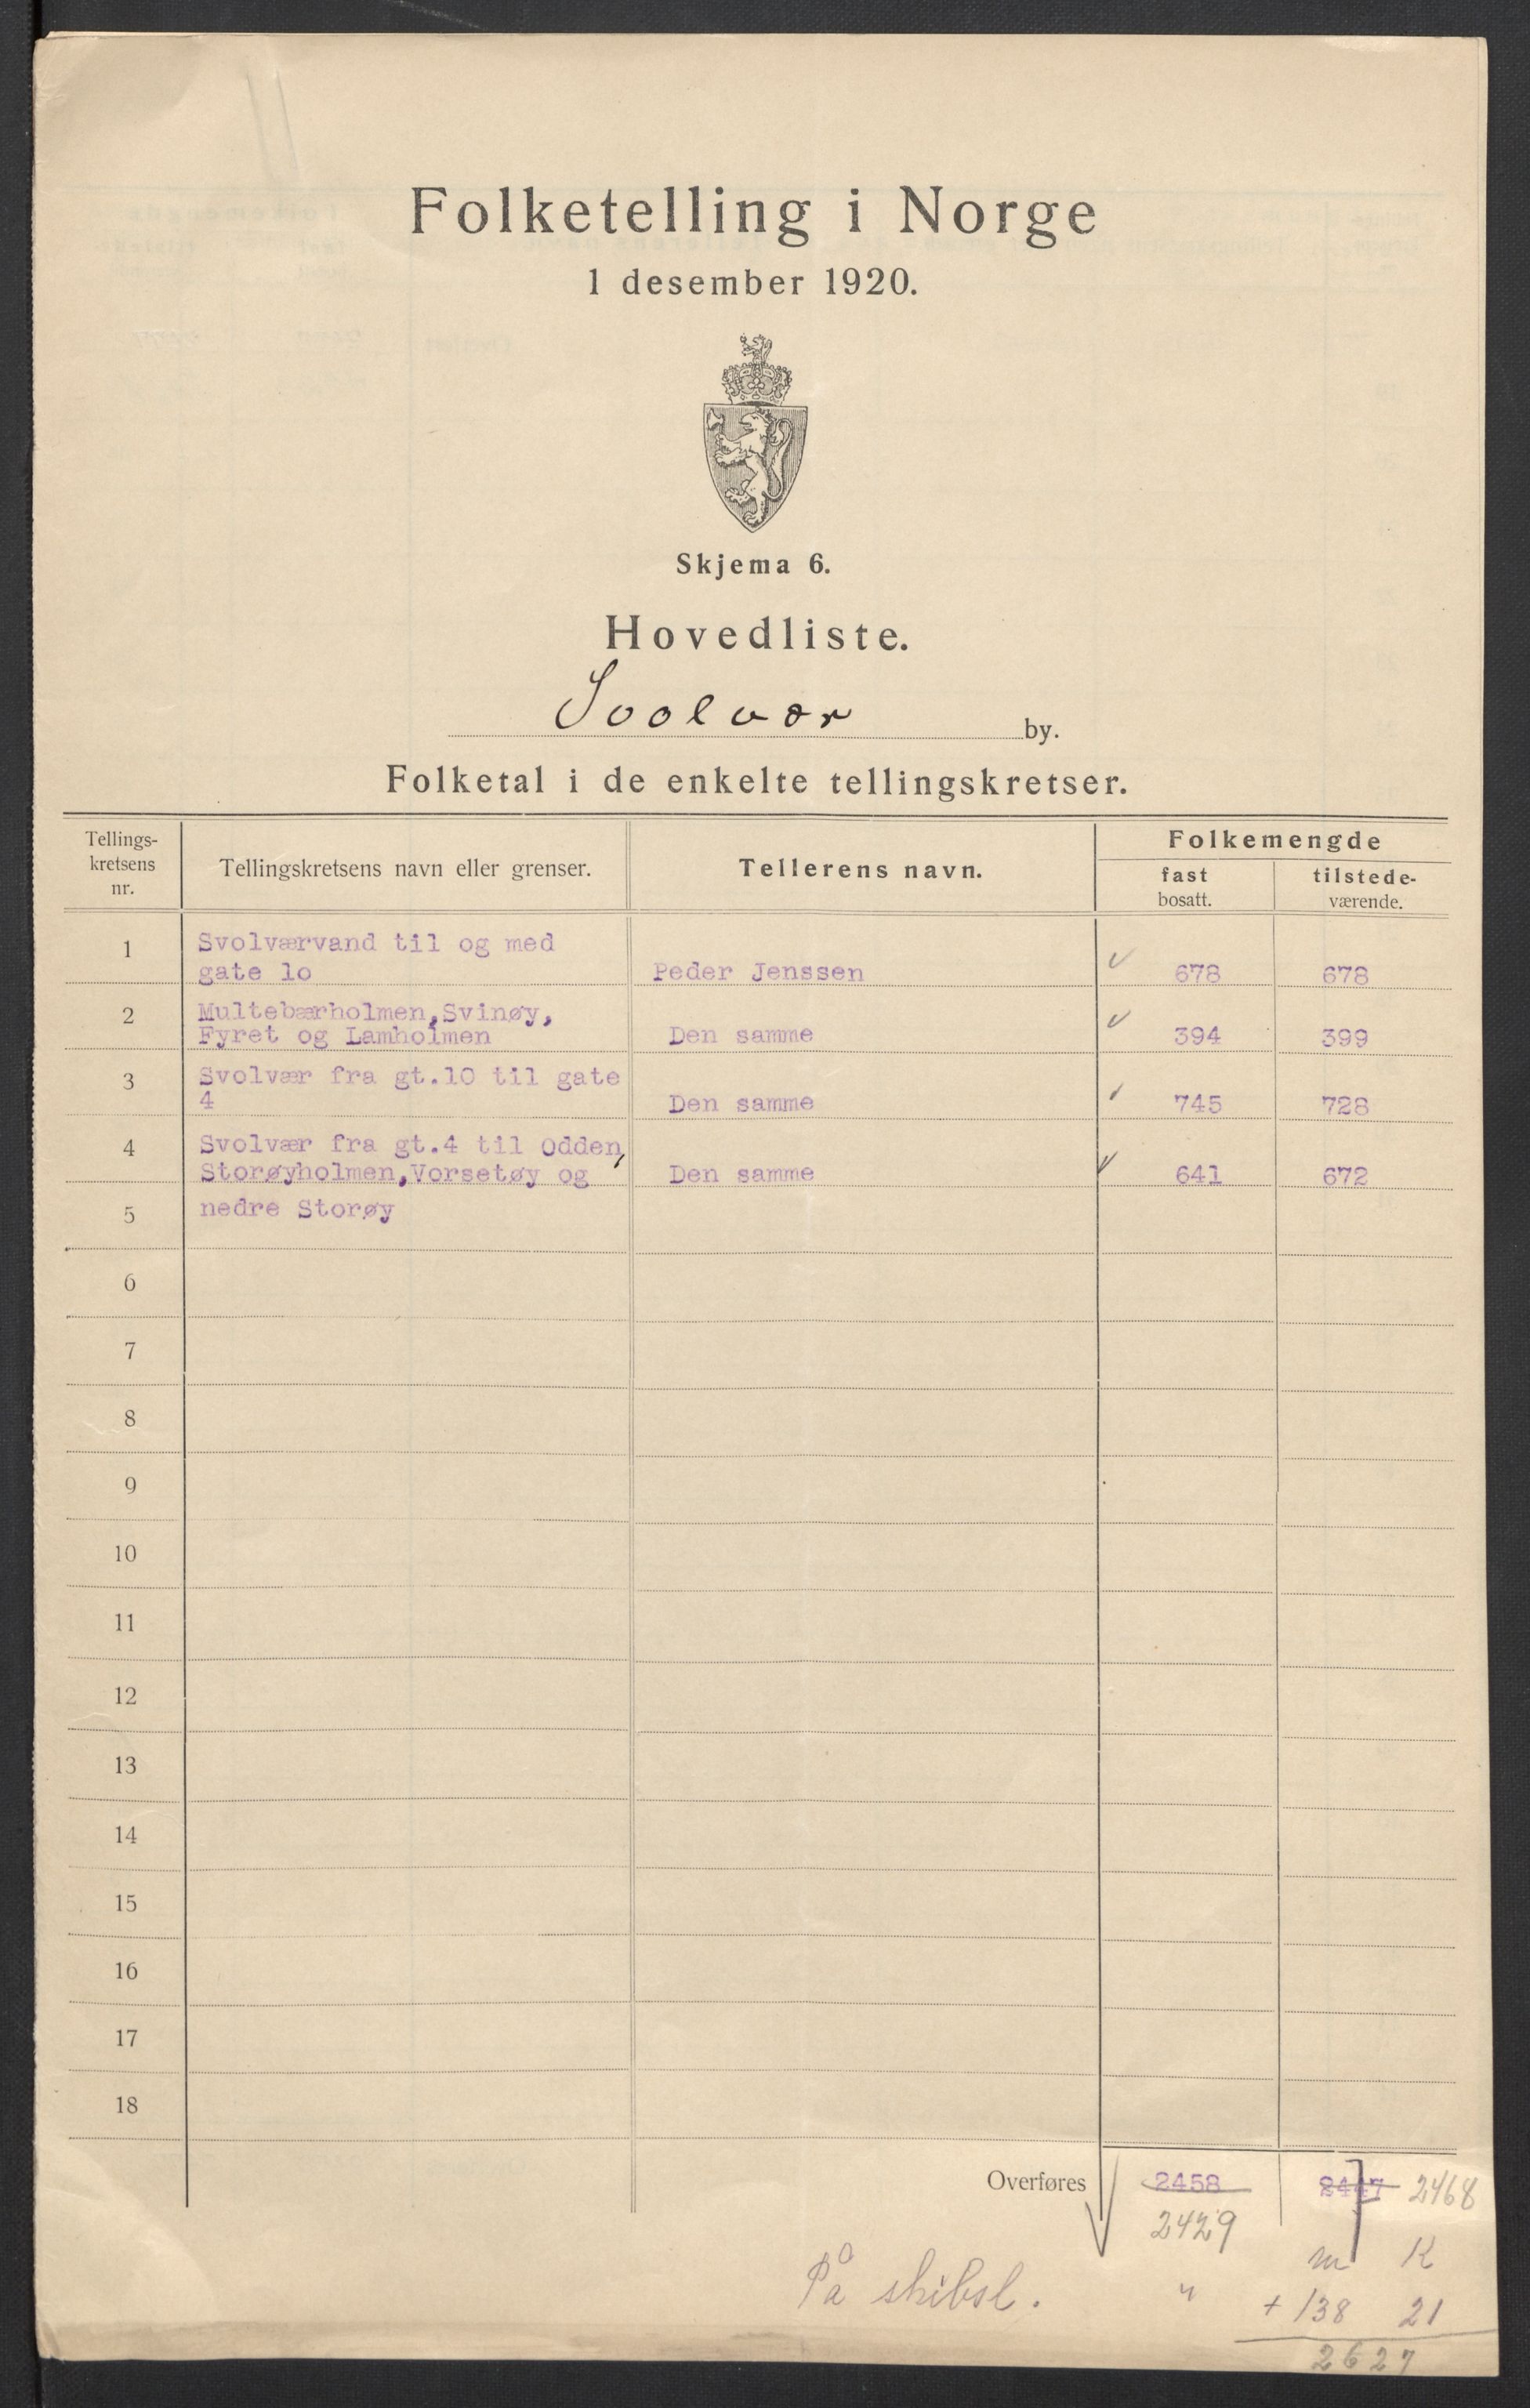 Folketelling i Norge
1 desember 1920.
Skjema 6.
Hovedliste.
Svolvær by.
Folketal i de enkelte tellingskretser.
Tellings-
kretsens
nr.
Tellingskretsens navn eller grenser.
Tellerens navn.
Folkemengde
fast
bosatt.
tilstede-
værende.
1 Svolværvand til og med
gate lo Peder Jenssen 678 678
2 Multebærholmen, Svinøy,
Fyret og Lamholmen Den samme 394 399
3 Svolvær fra gt.10 til gate
4 Den samme 745 728
4 Svolvær fra gt.4 til Odden,
Storøyholmen, Vorsetøy og Den samme 641 672
5 nedre Storøy
6
7
8
9
10
11
12
13
14
15
16
17
18
Overføres 2458 2447 2468
2429
m K
På skibsl. " + 138 21
2627